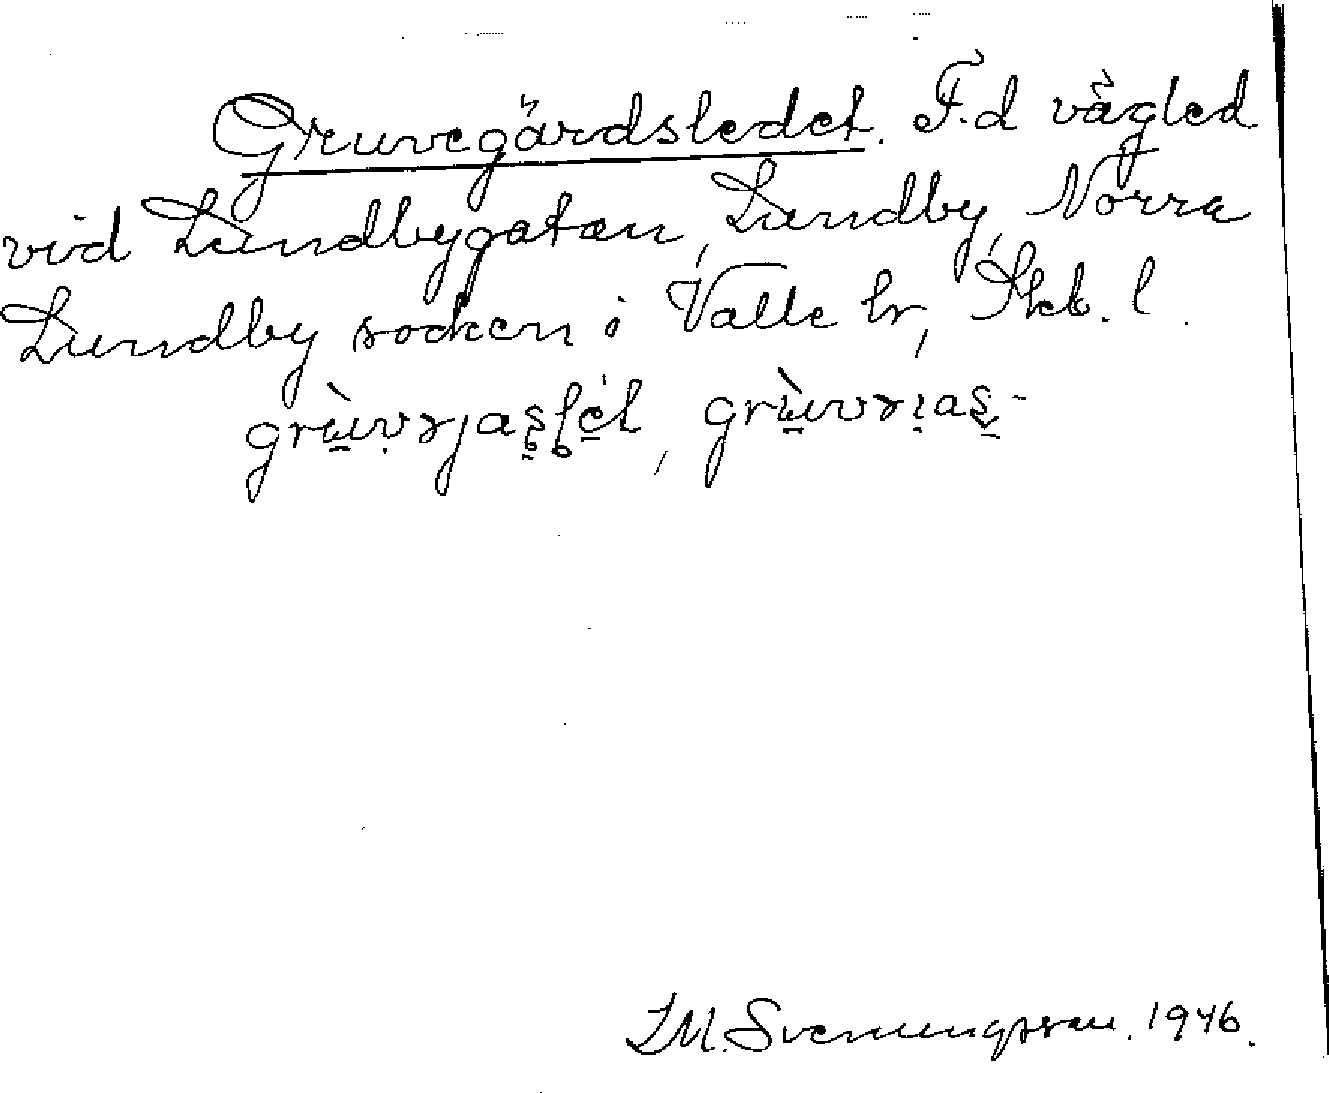 Gruvegärdsledet. F.d vägled
vid Lundbygatan, Lundby, Norra
Lundby socken i Valle hr, Skb. l.
grùvrjaslét, grùvrias-
L.M. Svenungsson. 1946.